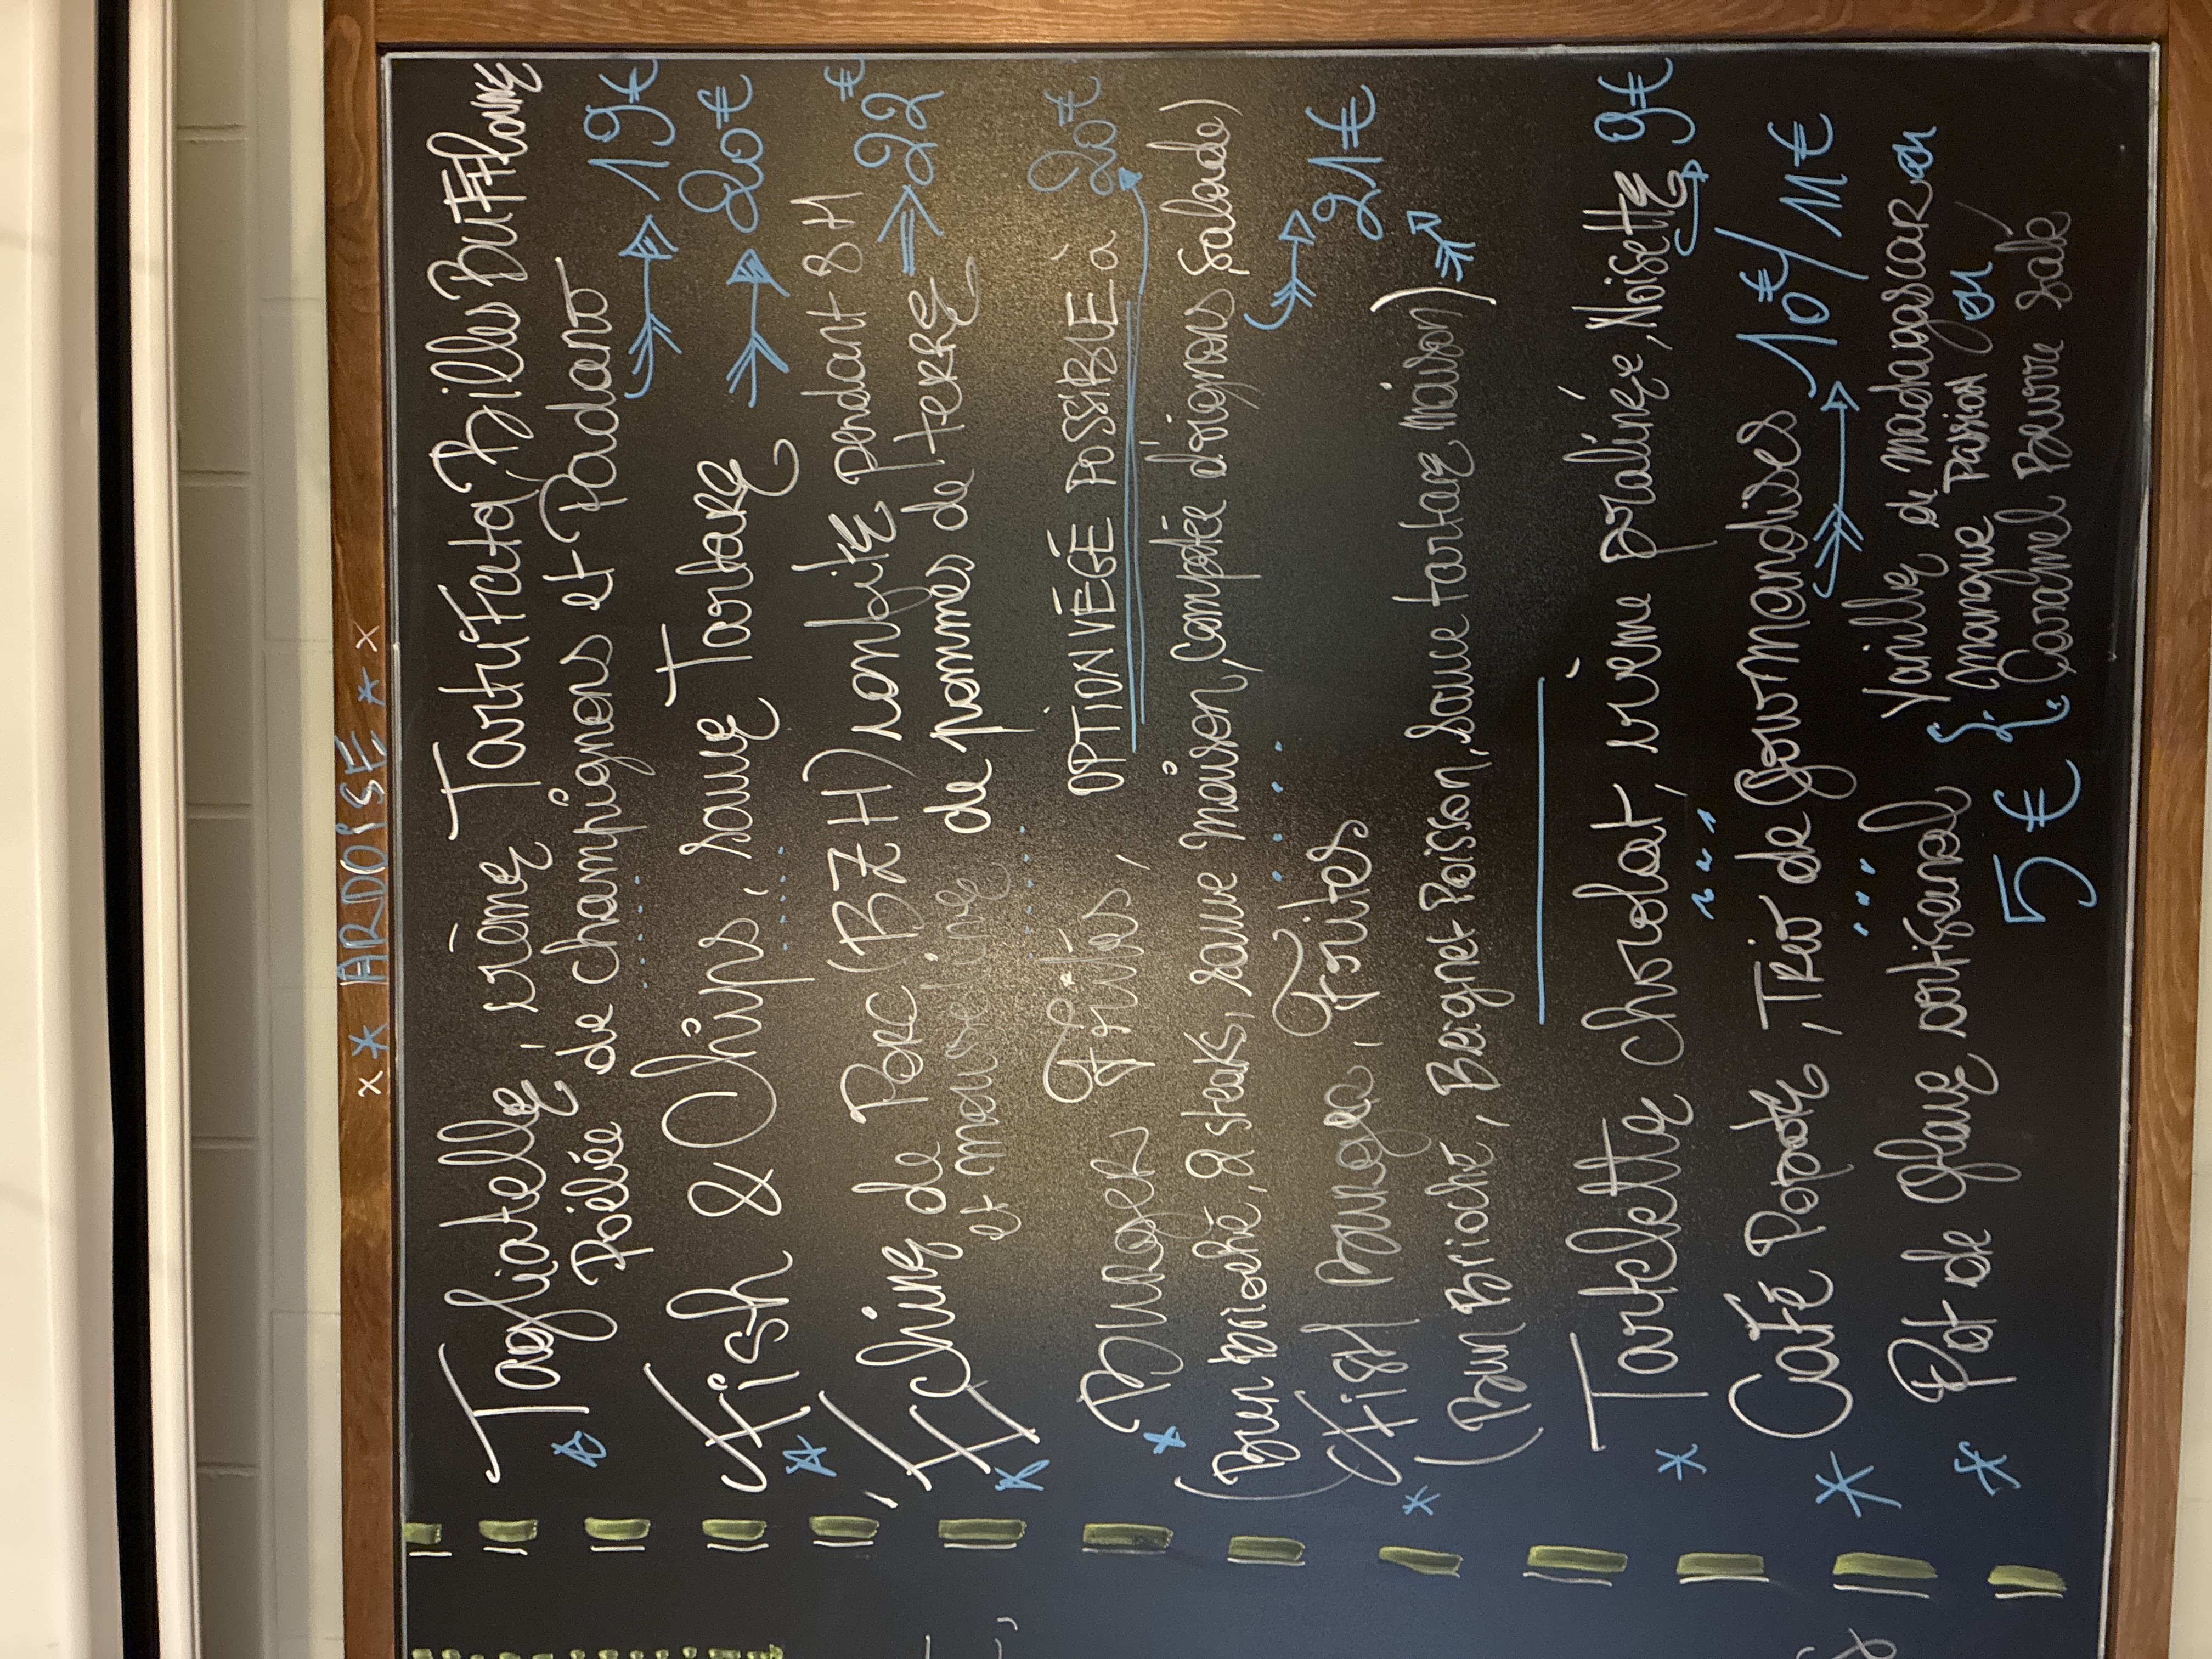 x * ARDOISE * x
Tagliatelle, crème Tartufata, Billes Bufflone
Poêlée de champignons et Padano → 19€
Fish & Chips, sauce Tartare → 20€
Echine de Porc (BZH) confite pendant 8H
et mousseline de pommes de terre ⇒ 22€
Burger Frites, OPTION VÉGÉ POSSIBLE à 20€
(Bun brioché, 2 steaks, sauce maison, compotée d'oignons, salade)
→ 21€
Fish burger, Frites
(Bun Brioché, Beignet Poisson, sauce tartare maison)
Tartelette chocolat, crème pralinée, Noisette → 9€
Café Popote, Trio de Gourmandises → 10€/11€
Pot de glace artisanal { Vanille de madagascar ou
mangue passion ou
5€ { Caramel Beurre salé